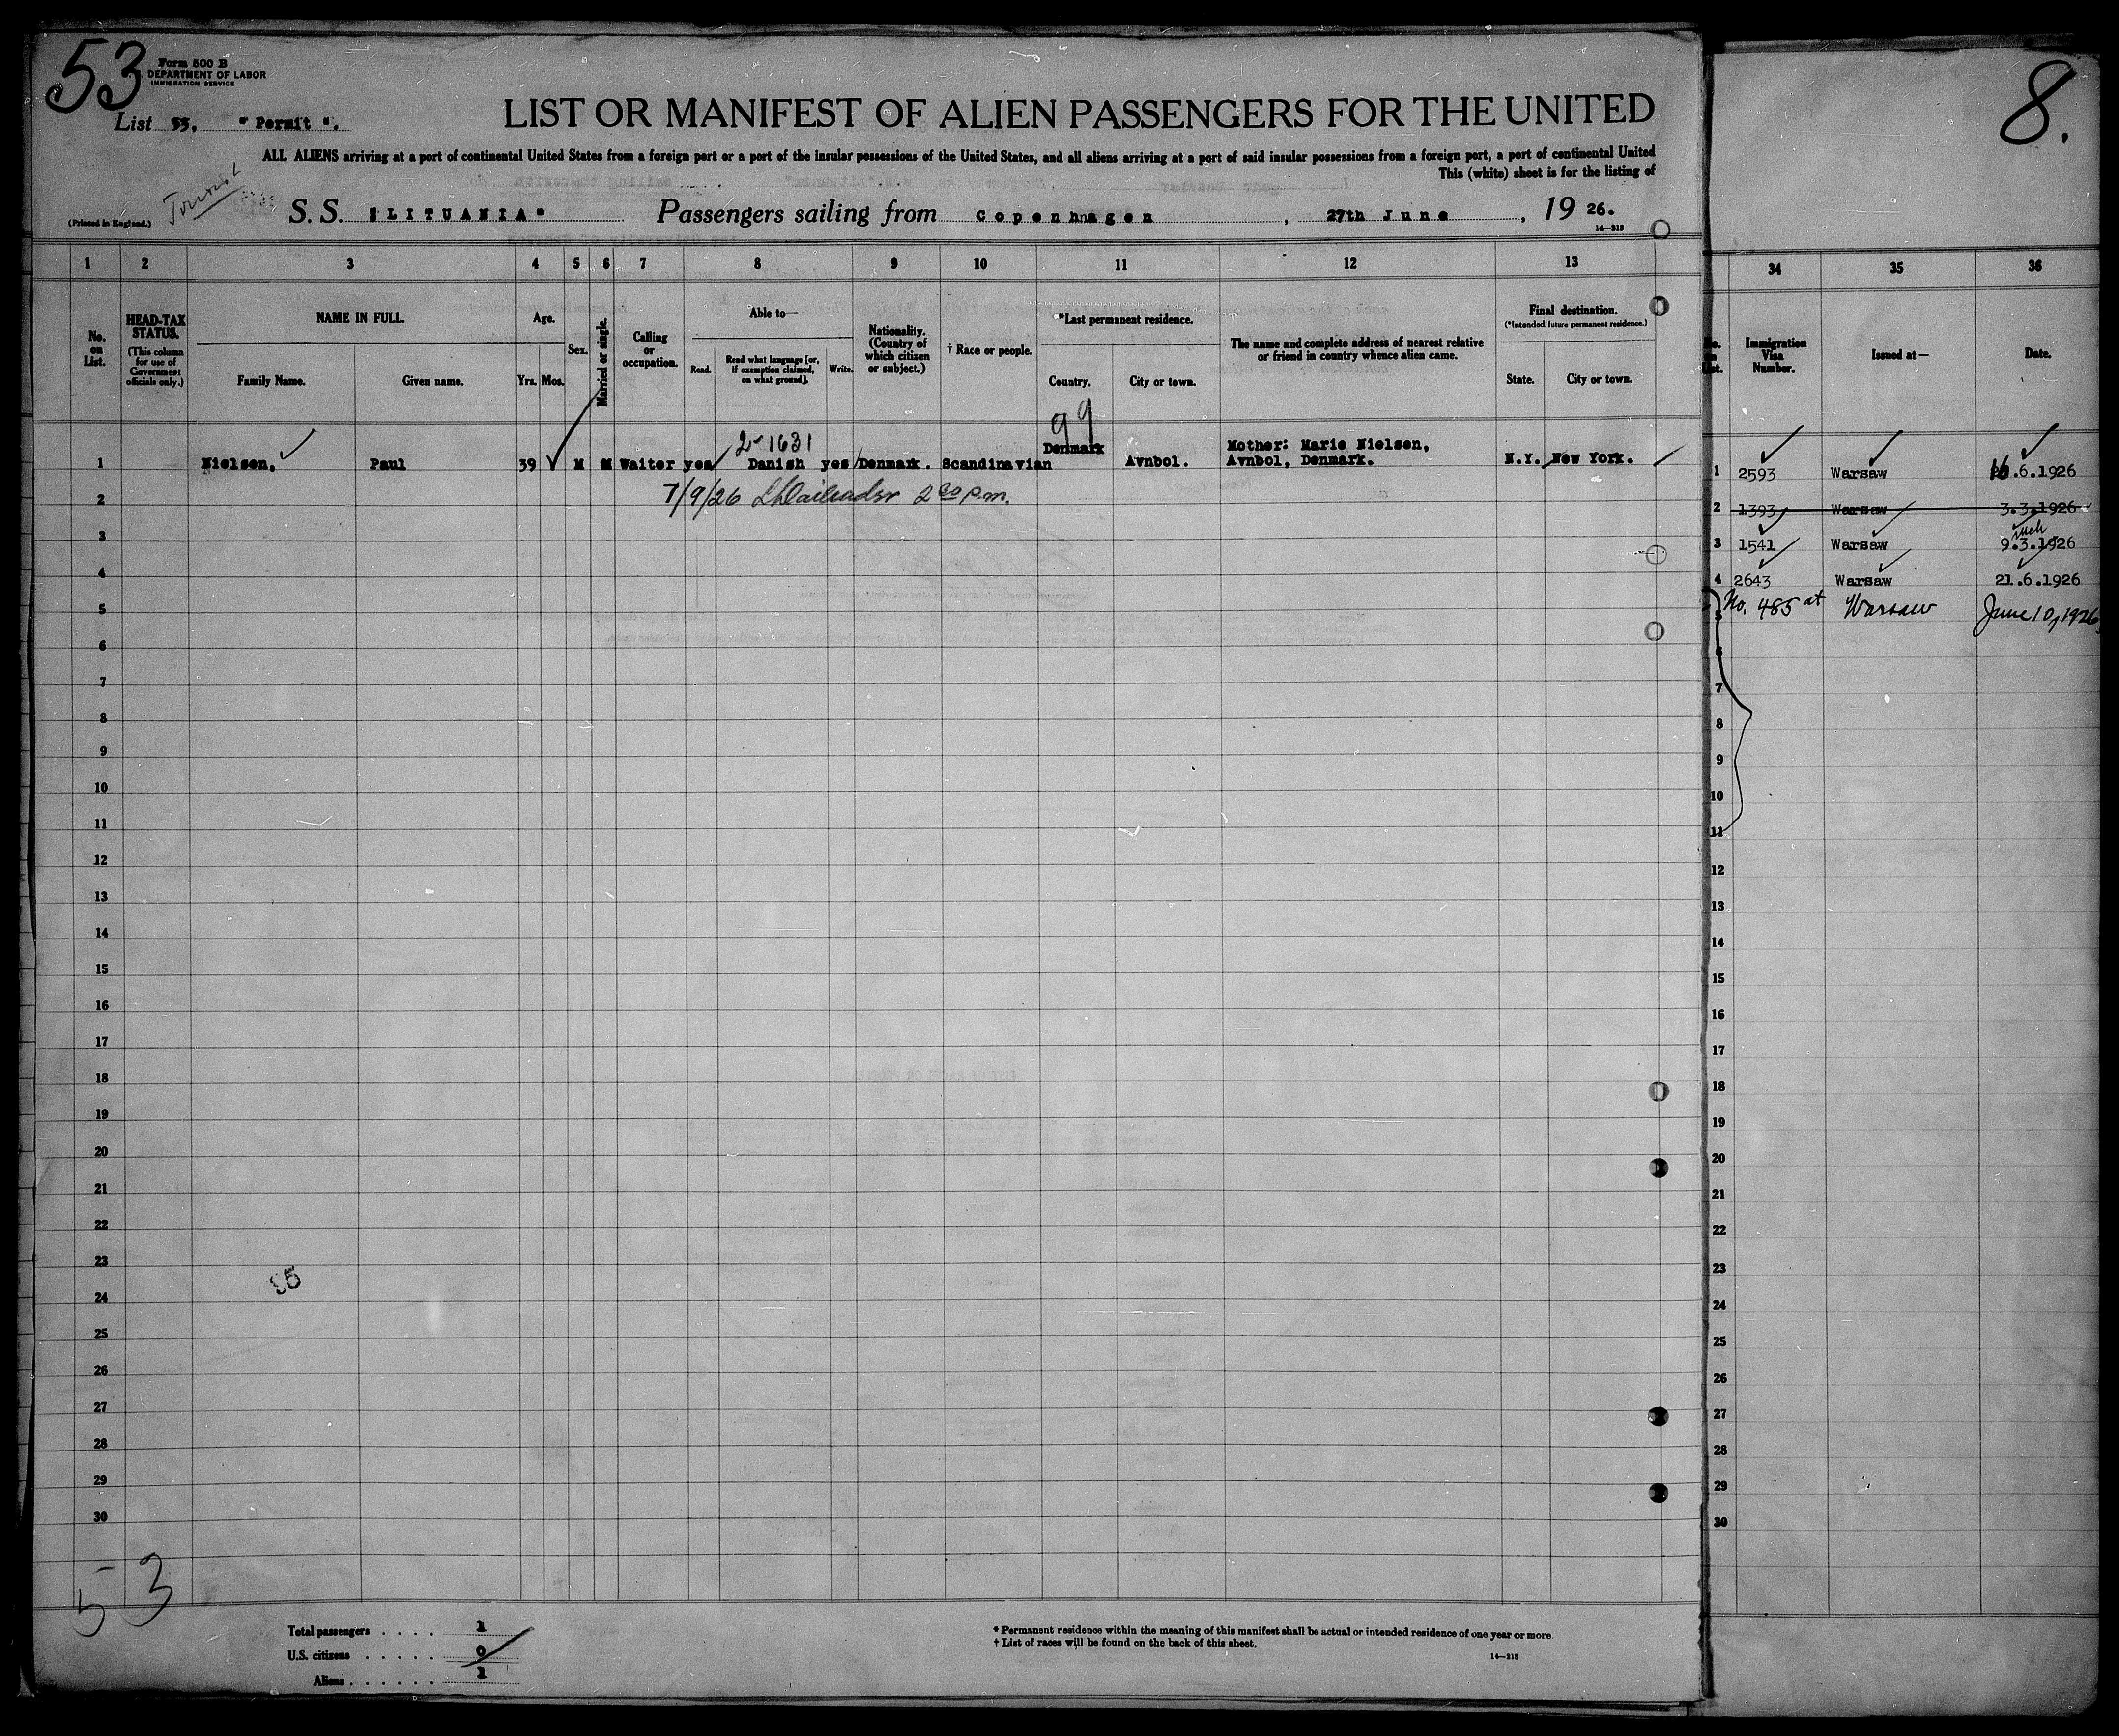 53
Form 500 B
DEPARTMENT OF LABOR
IMMIGRATION SERVICE
List 53, " Permit ".
LIST OR MANIFEST OF ALIEN PASSENGERS FOR THE UNITED
ALL ALIENS arriving at a port of continental United States from a foreign port or a port of the insular possessions of the United States, and all aliens arriving at a port of said insular possessions from a foreign port, a port of continental United
This (white) sheet is for the listing of
Tourist
(Printed in England.)
S. S. "LITUANIA" Passengers sailing from Copenhagen, 27th June, 19 26.
14—213
1 2 3 4 5 6 7 8 9 10 11 12 13
No. on List.
HEAD-TAX STATUS.
(This column for use of Government officials only.)
NAME IN FULL.
Family Name. Given name.
Age.
Yrs. Mos.
Sex.
Married or single.
Calling or occupation.
Able to—
Read. Read what language [or, if exemption claimed, on what ground]. Write.
Nationality. (Country of which citizen or subject.)
† Race or people.
*Last permanent residence.
Country. City or town.
The name and complete address of nearest relative or friend in country whence alien came.
Final destination.
(*Intended future permanent residence.)
State. City or town.
99
2-1631
1 Nielsen, Paul 39 M M Waiter yes Danish yes Denmark. Scandinavian Denmark Avnbol. Mother: Marie Nielsen,
Avnbol, Denmark. N.Y. New York.
2 7/9/26 2 00 p.m.
3
4
5
6
7
8
9
10
11
12
13
14
15
16
17
18
19
20
21
22
23
24
25
26
27
28
29
30
53
Total passengers . . . . 1
U.S. citizens . . . . . 0
Aliens . . . . . . 1
* Permanent residence within the meaning of this manifest shall be actual or intended residence of one year or more.
† List of races will be found on the back of this sheet.
14—213
8.
34 35 36
Immigration Visa Number.
Issued at—
Date.
1 2593 Warsaw 16.6.1926
2 1393 Warsaw 3.3.1926
3 1541 Warsaw 9.3.1926
4 2643 Warsaw 21.6.1926
No. 485 at Warsaw June 10, 1926
5
6
7
8
9
10
11
12
13
14
15
16
17
18
19
20
21
22
23
24
25
26
27
28
29
30